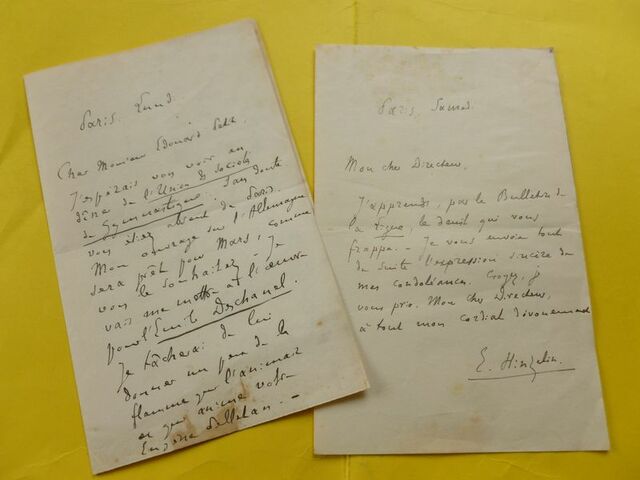 Paris. Lundi.
Cher Monsieur Edouard Petit
J'espérais vous voir au
dîner de l'Union des Sociétés
de Gymnastique. Sans doute
vous étiez absent de Paris.
Mon ouvrage sur l'Allemagne
sera prêt pour Mars, comme
vous le souhaitez. Je
vais me mettre à l'œuvre
pour l'Emile Deschanel.
Je tâcherai de lui
donner un peu de la
flamme qui l'animait
et qui anime votre
Eugène Pelletan. —
Paris, Samedi.
Mon cher Directeur,
J'apprends, par le Bulletin de
la Ligue, le deuil qui vous
frappe. — Je vous envoie tout
de suite l'expression sincère de
mes condoléances. Croyez, je
vous prie, Mon cher Directeur,
à tout mon cordial dévouement
E. Hinzelin.